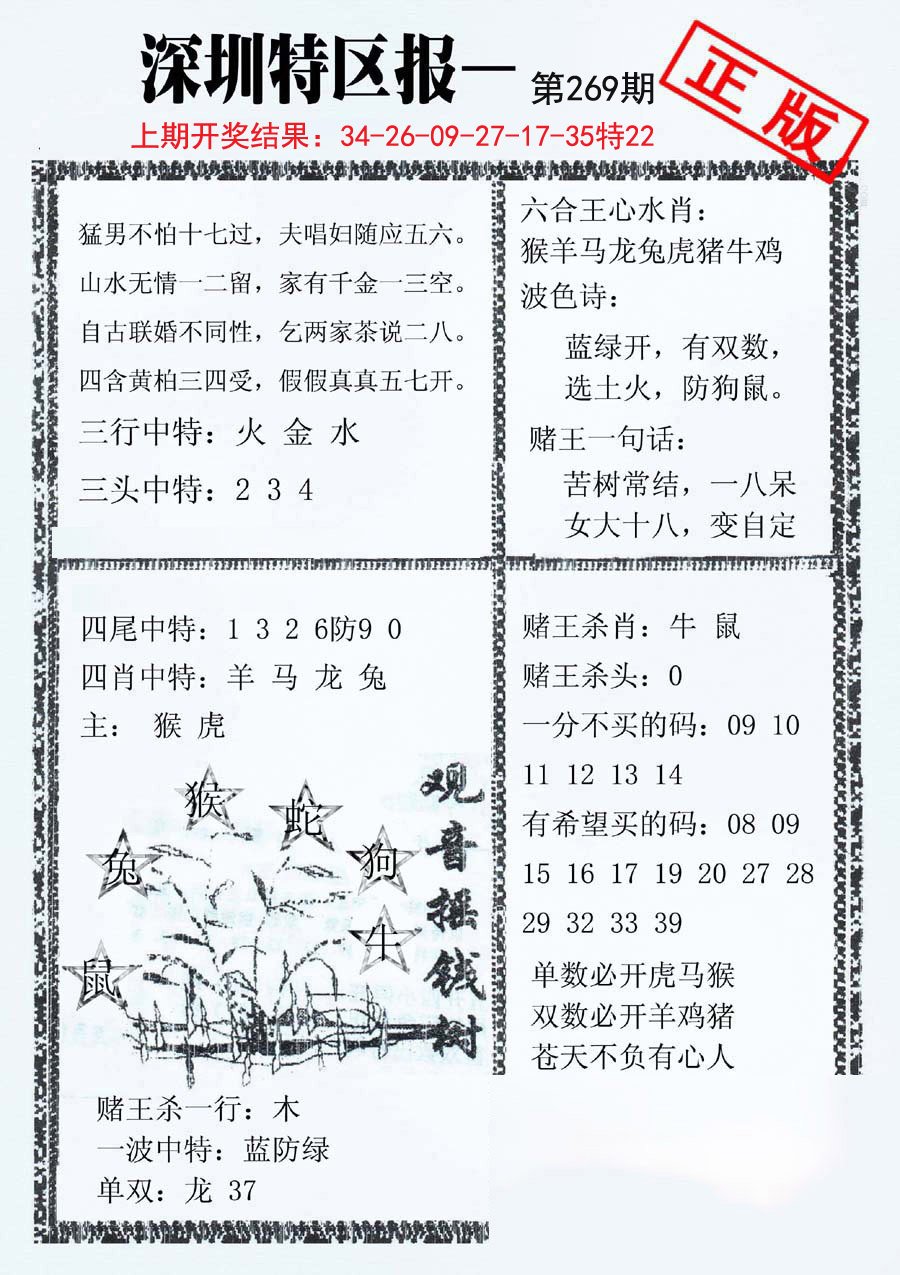 深圳特区报一 第269期
正版
上期开奖结果：34-26-09-27-17-35特22
猛男不怕十七过，夫唱妇随应五六。
山水无情一二留，家有千金一三空。
自古联婚不同性，乞两家茶说二八。
四含黄柏三四受，假假真真五七开。
三行中特：火 金 水
三头中特：2 3 4
六合王心水肖：
猴羊马龙兔虎猪牛鸡
波色诗：
蓝绿开，有双数，
选土火，防狗鼠。
赌王一句话：
苦树常结，一八呆
女大十八，变自定
四尾中特：1 3 2 6防9 0
四肖中特：羊 马 龙 兔
主： 猴 虎
猴
蛇
兔
狗
牛
鼠
观音摇钱树
赌王杀一行：木
一波中特：蓝防绿
单双：龙 37
赌王杀肖：牛 鼠
赌王杀头：0
一分不买的码：09 10
11 12 13 14
有希望买的码：08 09
15 16 17 19 20 27 28
29 32 33 39
单数必开虎马猴
双数必开羊鸡猪
苍天不负有心人